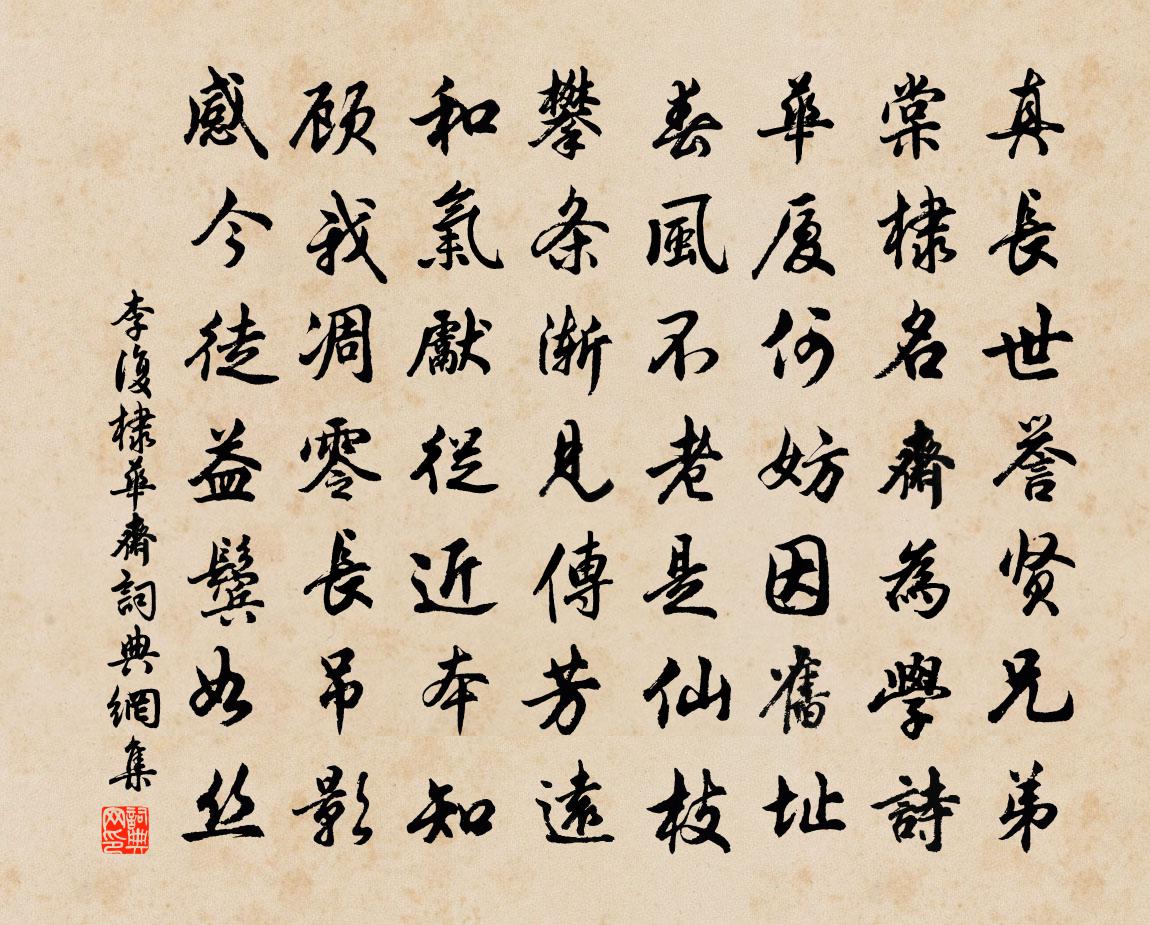 真長世誉贤兄弟
棠棣名齋為學詩
華厦何妨因舊址
春風不老是仙枝
攀条漸見傳芳遠
和氣獻從近本知
顾我凋零長吊影
感今徒益鬓如丝
李復棣華齋詞典網集
詞典网印